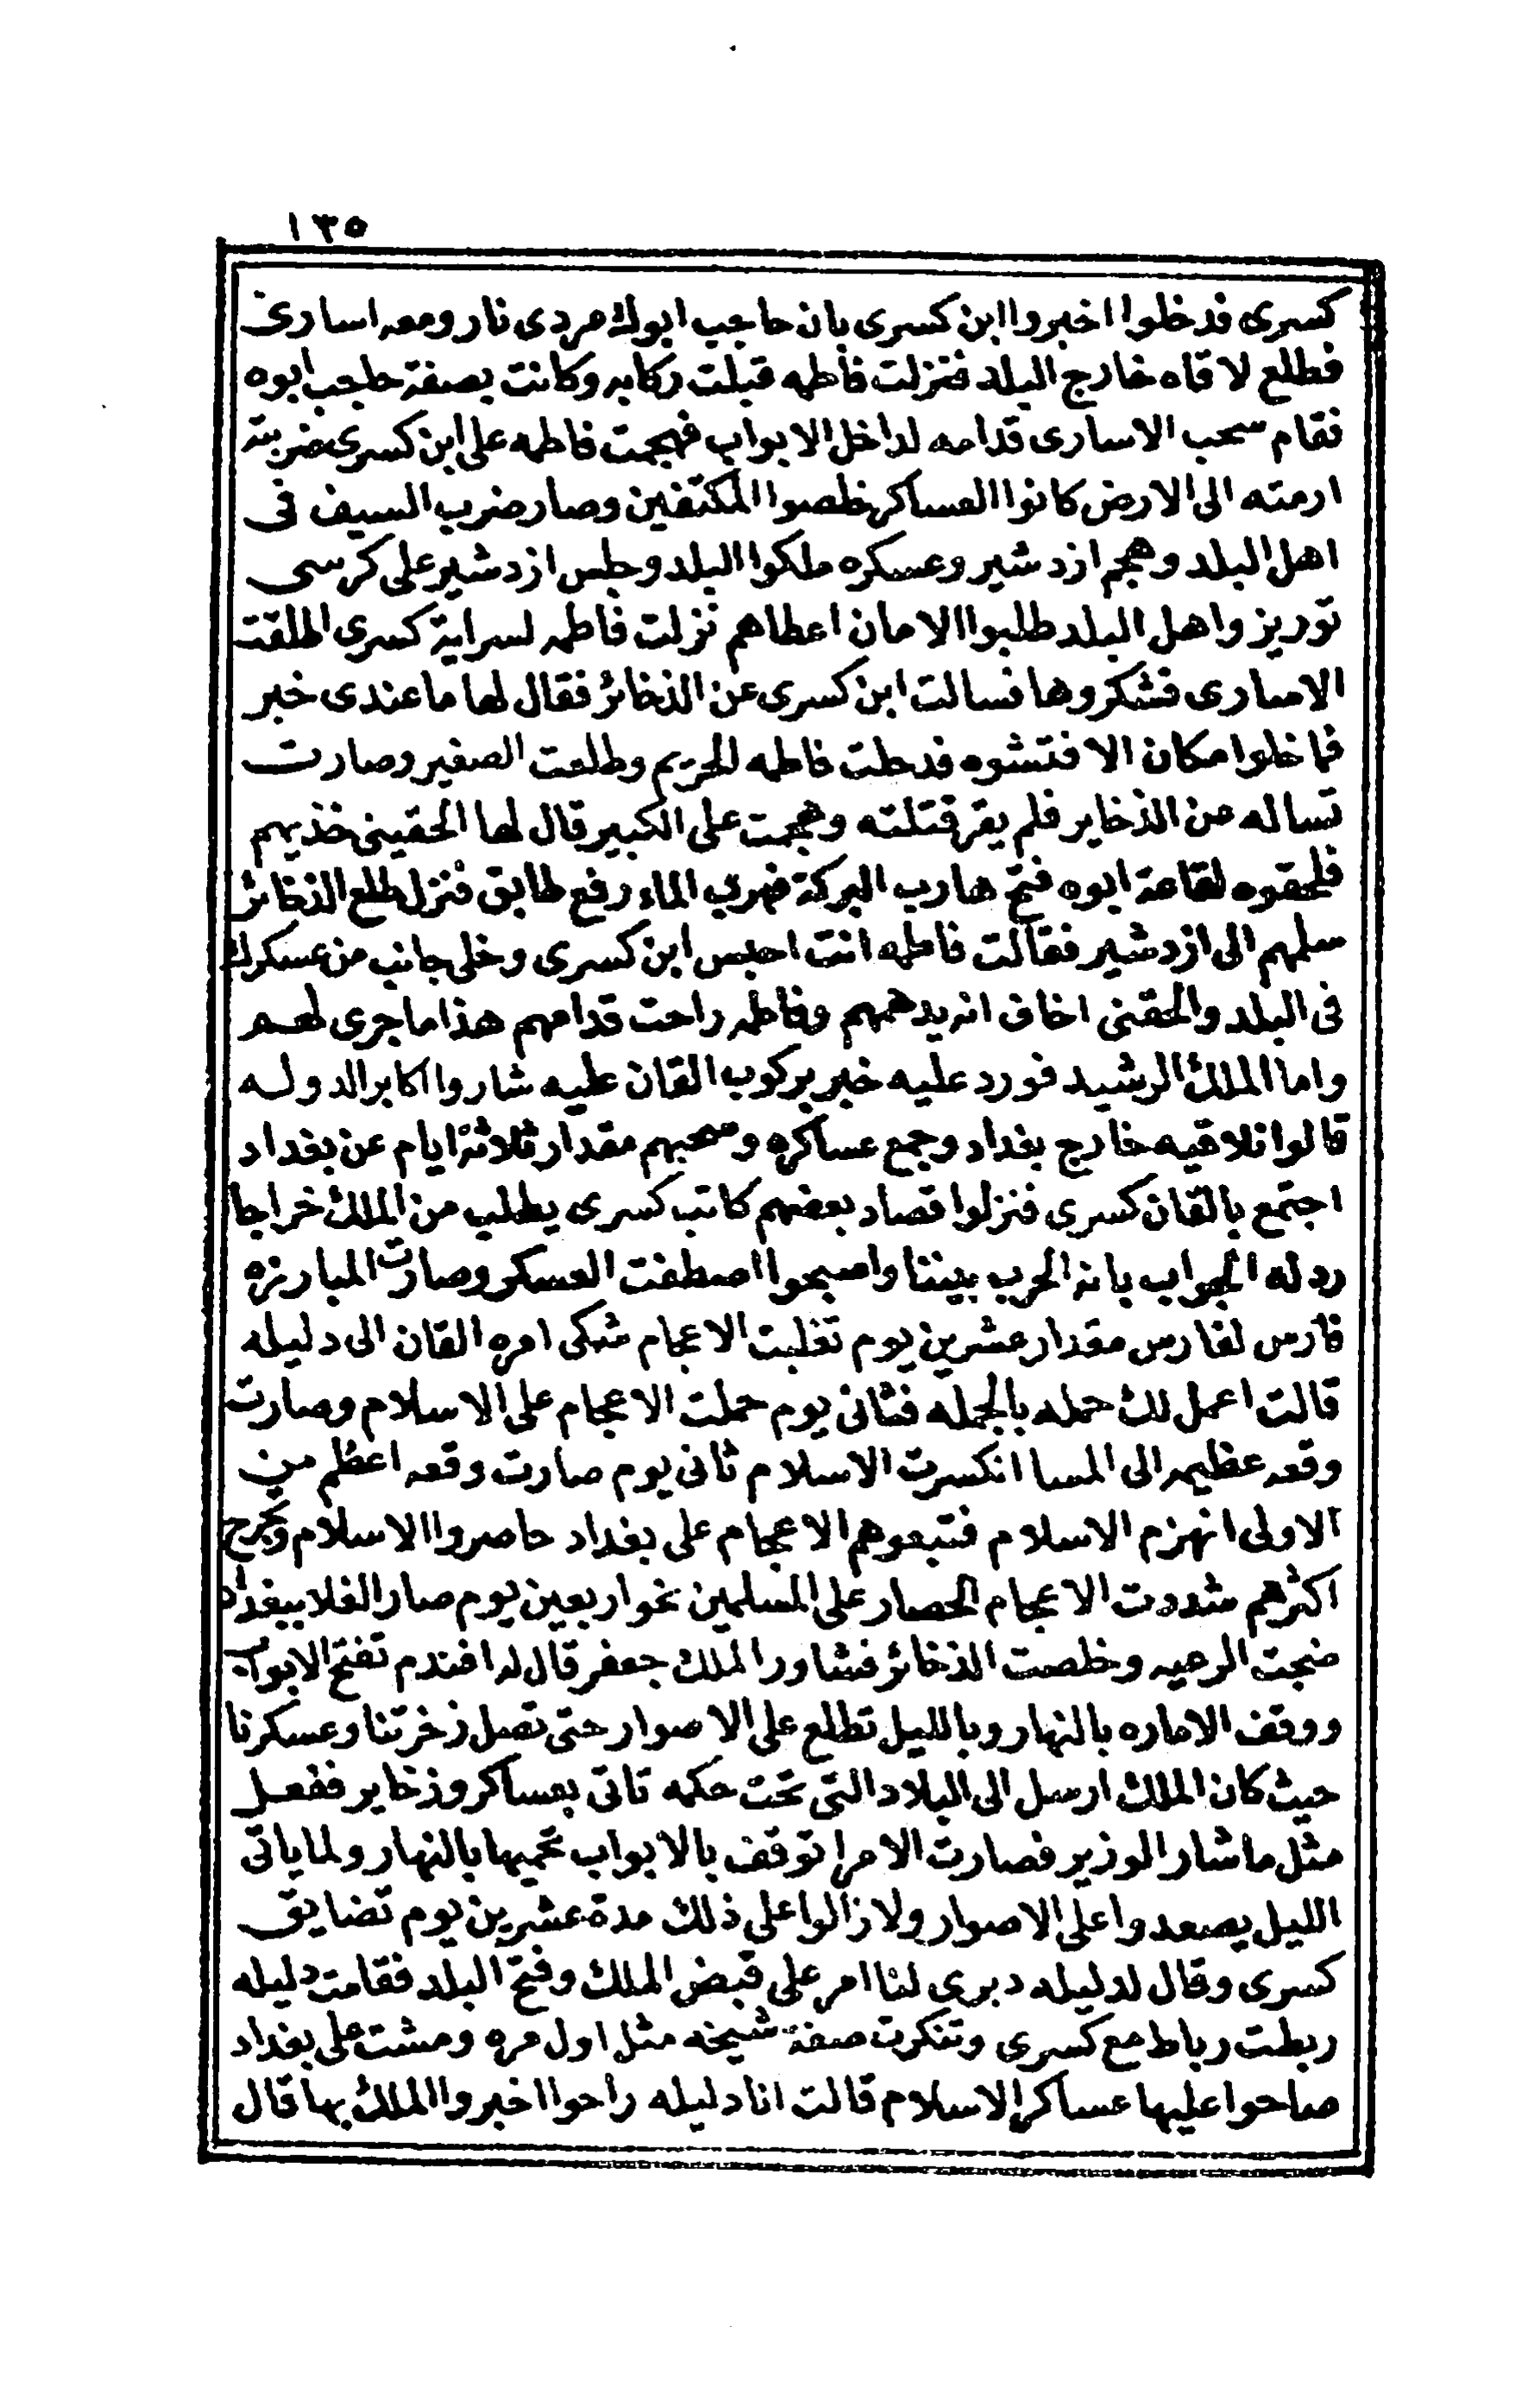 ١٣٥
كسرى فدخلوا اخبروا ابن كسرى بان حاجب ابوك مردى نار ومعه اسارى
فطلع لاقاه خارج البلد فنزلت فاطمه قبلت ركابه وكانت بصفة حاجب ابوه
فقام سحب الاسارى قدامه لداخل الابواب فهجمت فاطمه على ابن كسرى ضربته
ارمته الى الارض كانوا العساكر خلصوا المكتفين وصار ضرب السيف فى
اهل البلد وهجم ازدشير وعسكره ملكوا البلد وجلس ازدشير على كرسى
توريز واهل البلد طلبوا الامان اعطاهم نزلت فاطمه لسراية كسرى اطلقت
الاسارى فشكروها فسالت ابن كسرى عن الذخائر فقال لها ما عندى خبر
فما خلوا مكان الا فتشوه فدخلت فاطمه للحريم وطلعت الصغير وصارت
تساله عن الذخاير فلم يقر قتلته وهجمت على الكبير قال لها الحقينى خذيهم
فلحقوه لقاعة ابوه فتح هارب البركة فهرب الماء رفع طابق فنزل طلع الذخائر
سلمهم الى ازدشير فقالت فاطمه انت احبس ابن كسرى وخلى جانب من عسكرك
فى البلد والحقنى اخاف انه يدهمهم وفاطمه راحت قدامهم هذا ما جرى لهم
واما الملك الرشيد فورد عليه خبر بركوب القان عليه شاروا اكابر الدوله
قالوا نلاقيه خارج بغداد وجمع عساكره وسحبهم مقدار ثلاثة ايام عن بغداد
اجتمع بالقان كسرى فنزلوا قصاد بعضهم كاتب كسرى يطلب من الملك خراجا
رد له الجواب بانه الحرب بيننا واصبحوا اصطفت العسكر وصارت المبارزه
فارس لفارس مقدار عشرين يوم تغلبت الاعجام شكى امره القان الى دليله
قالت اعمل لك حمله بالجمله فثانى يوم حملت الاعجام على الاسلام وصارت
وقعه عظيمه الى المسا انكسرت الاسلام ثانى يوم صارت وقعه اعظم من
الاولى انهزم الاسلام فتبعوهم الاعجام على بغداد حاصروا الاسلام وتجرح
اكثرهم شددت الاعجام الحصار على المسلمين نحو اربعين يوم صار الغلا ببغداد
ضجت الرعيه وخلصت الذخائر فشاور الملك جعفر قال له افندم تفتح الابواب
ووقف الاماره بالنهار وبالليل تطلع على الاصوار حتى تصل زخرتنا وعسكرنا
حيث كان الملك ارسل الى البلاد التى تحت حكمه تاتى بعساكر وذخاير ففعل
مثل ما شار الوزير فصارت الامرا توقف بالابواب تحميها بالنهار ولما ياتى
الليل يصعدوا على الاصوار ولا زالوا على ذلك مدة عشرين يوم تضايق
كسرى وقال لدليله دبرى لنا امر على قبض الملك وفتح البلد فقامت دليله
ربطت رباط مع كسرى وتنكرت صفة شيخه مثل اول مره ومشت على بغداد
صاحوا عليها عساكر الاسلام قالت انا دليله راحوا اخبروا الملك بها قال